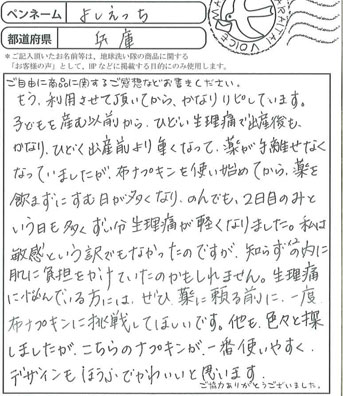 ペンネーム よしえっち
都道府県 兵庫
*ご記入頂いたお名前等は、地球洗い隊の商品に関する
「お客様の声」として、HPなどに掲載する目的にのみ使用します。
ご自由に商品に関するご感想などお書きください。
もう、利用させて頂いてから、かなりリピしています。
子どもを産む以前から、ひどい生理痛で出産後も、
かなりひどく出産前より重くなって、薬が手離せなく
なっていましたが、布ナプキンを使い始めてから、薬を
飲まずにすむ日が多くなり、のんでも、2日目のみと
いう日も多くずい分生理痛が軽くなりました。私は
敏感という訳でもなかったのですが、知らず知らずの内に
肌に負担をかけていたのかもしれません。生理痛
に悩んでいる方には、ぜひ、薬に頼る前に、一度
布ナプキンに挑戦してほしいです。他も、色々と探
しましたが、こちらのナプキンが、一番使いやすく、
デザインもほうふでかわいいと思います。
ご協力ありがとうございました。